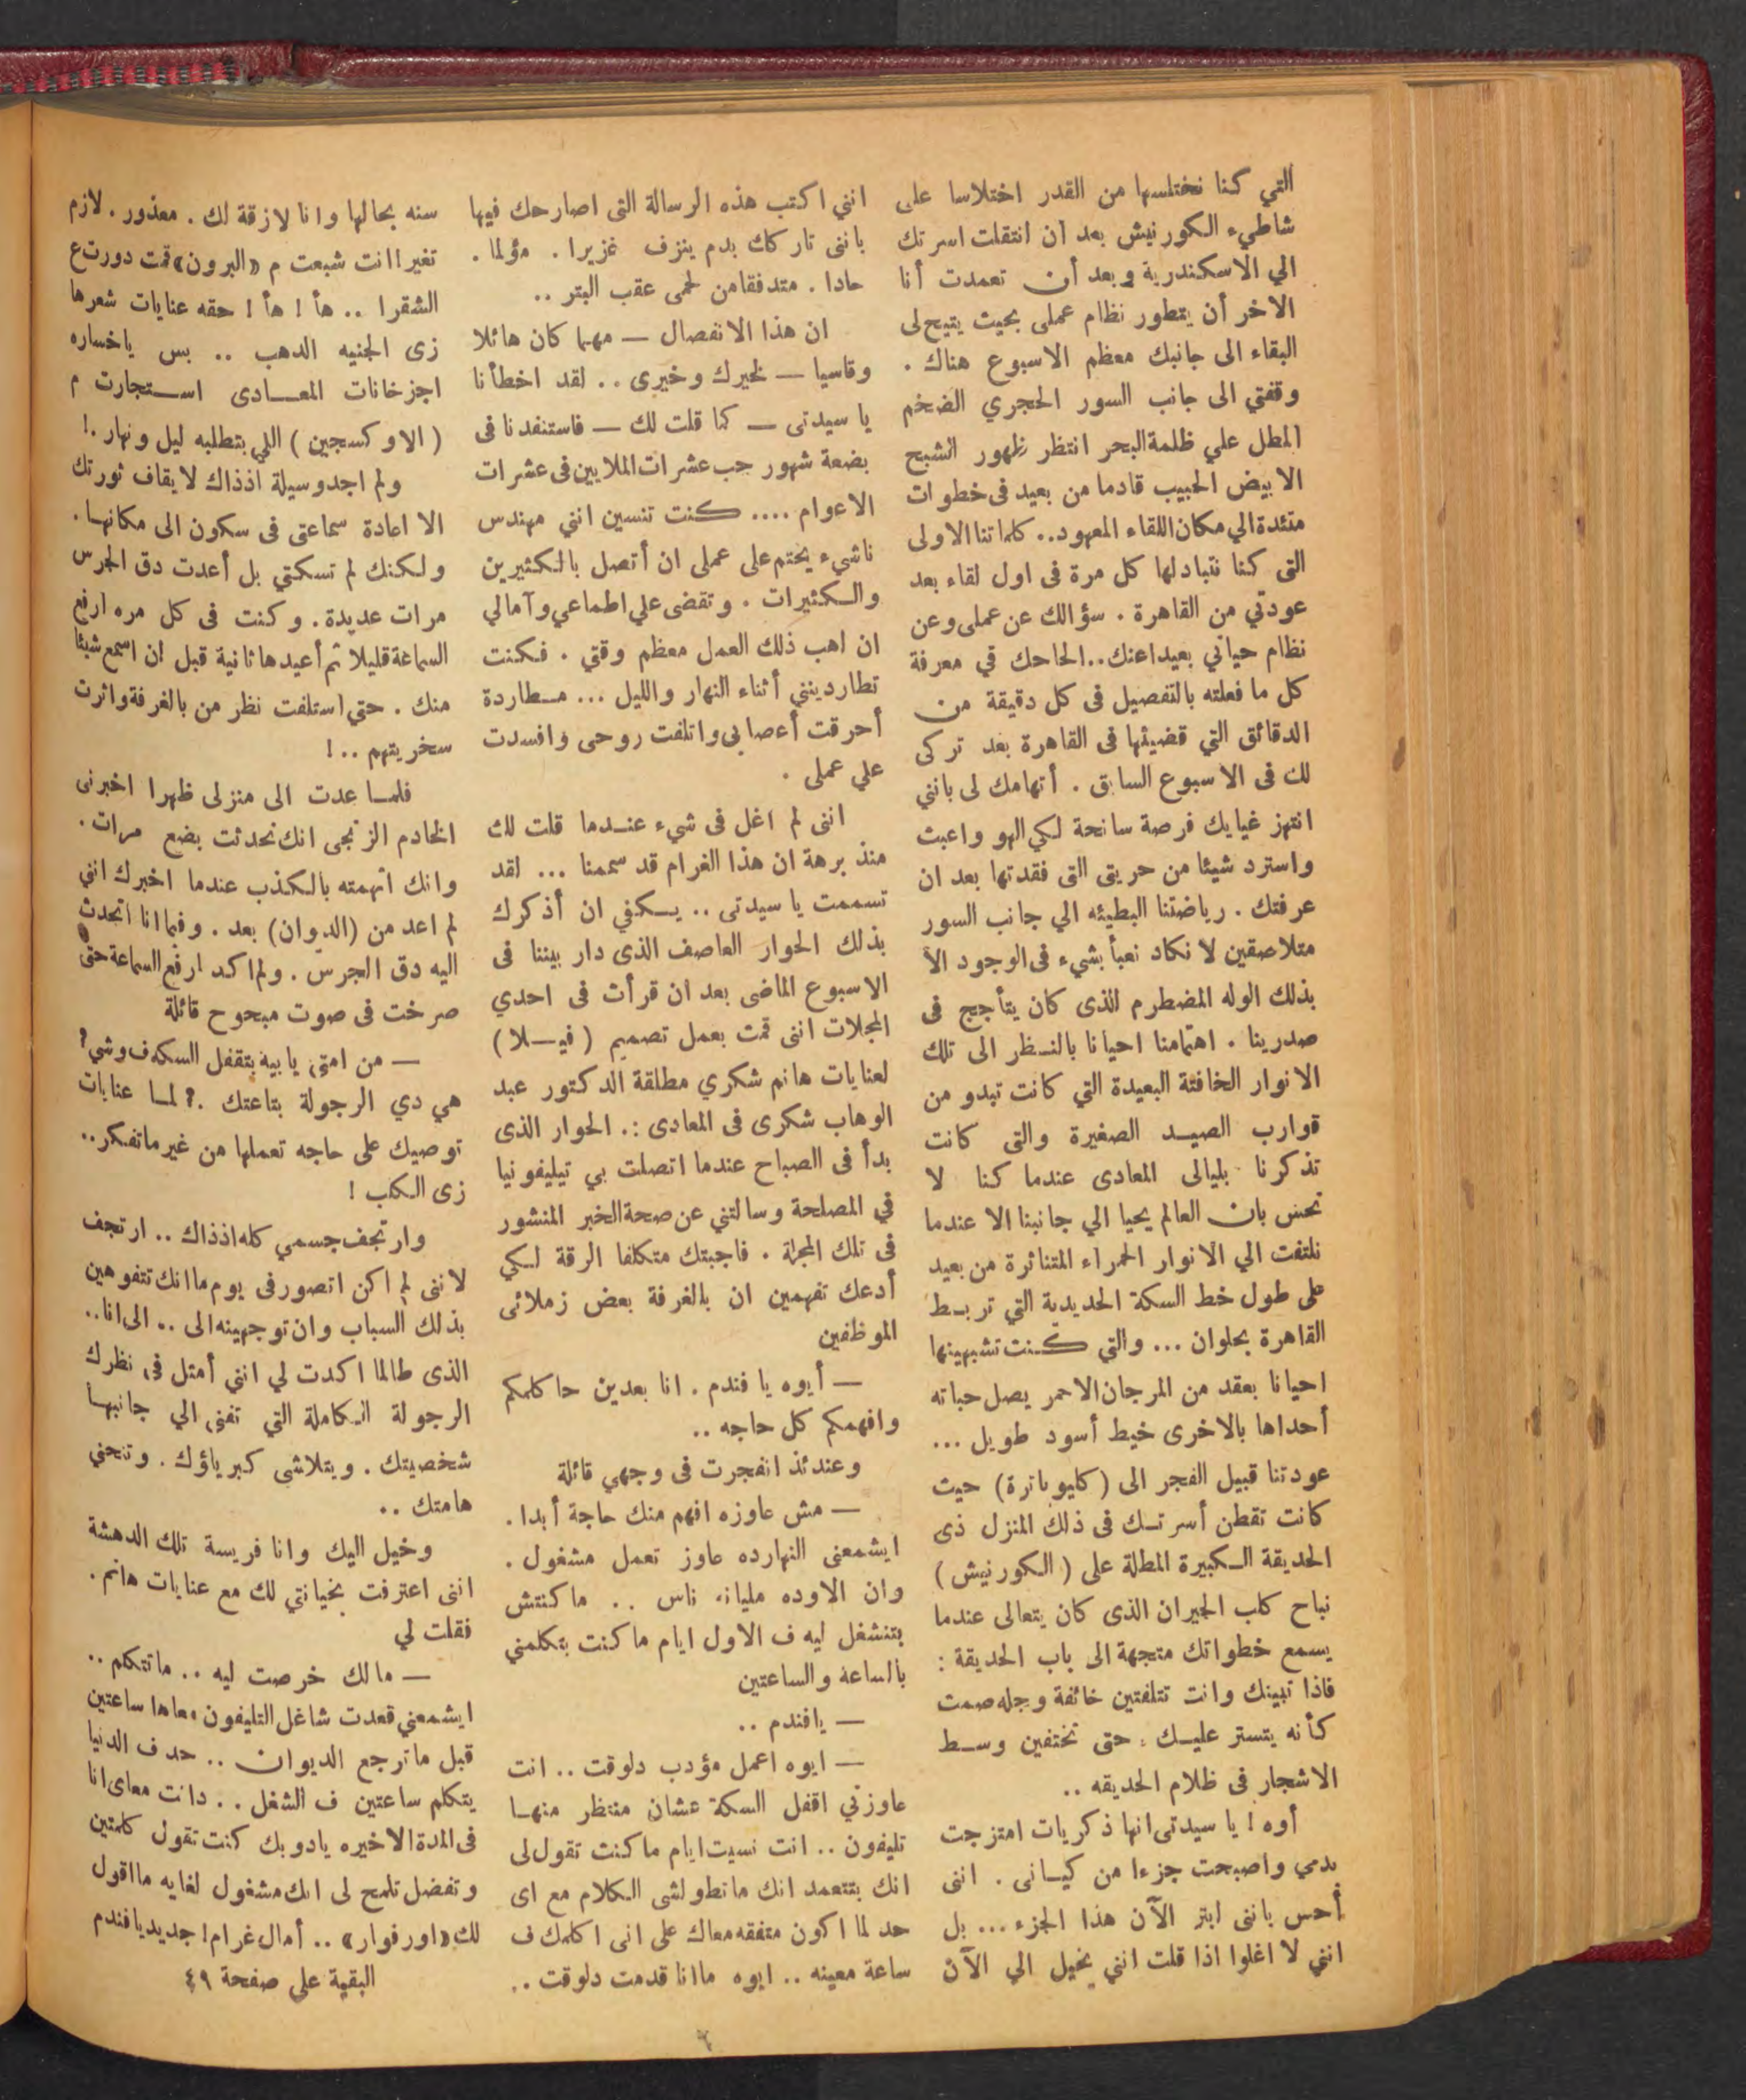 التي كنا نختلسها من القدر اختلاسا على
شاطيء الكورنيش بعد ان انتقلت اسرتك
الي الاسكندرية وبعد أن تعمدت أنا
الاخر أن يتطور نظام عملى بحيث يتيح لى
البقاء الى جانبك معظم الاسبوع هناك .
وقفتي الى جانب السور الحجري الضخم
المطل علي ظلمة البحر انتظر ظهور الشبح
الابيض الحبيب قادما من بعيد فى خطوات
متئدة الي مكان اللقاء المعهود .. كلماتنا الاولى
التى كنا نتبادلها كل مرة فى اول لقاء بعد
عودتي من القاهرة . سؤالك عن عملى وعن
نظام حياتي بعيدا عنك .. الحاحك في معرفة
كل ما فعلته بالتفصيل فى كل دقيقة من
الدقائق التي قضيتها فى القاهرة بعد تركى
لك فى الاسبوع السابق . أتهامك لى بانني
انتهز غيابك فرصة سانحة لكي الهو واعبث
واسترد شيئا من حريتى التى فقدتها بعد ان
عرفتك . رياضتنا البطيئه الي جانب السور
متلاصقين لا نكاد نعبأ بشيء فى الوجود الا
بذلك الوله المضطرم الذى كان يتأجج فى
صدرينا . اهتمامنا احيانا بالنظر الى تلك
الانوار الخافتة البعيدة التي كانت تبدو من
قوارب الصيد الصغيرة والتى كانت
تذكرنا بليالى المعادى عندما كنا لا
نحس بان العالم يحيا الي جانبنا الا عندما
نلتفت الي الانوار الحمراء المتناثرة من بعيد
على طول خط السكة الحديدية التي تربط
القاهرة بحلوان ... والتي كنت تشبهينها
احيانا بعقد من المرجان الاحمر يصل حباته
أحداها بالاخرى خيط أسود طويل ...
عودتنا قبيل الفجر الى ( كليوباترة ) حيث
كانت تقطن أسرتك فى ذلك المنزل ذى
الحديقة الكبيرة المطلة على ( الكورنيش )
نباح كلب الجيران الذى كان يتعالى عندما
يسمع خطواتك متجهة الى باب الحديقة :
فاذا تبينك وانت تتلفتين خائفة وجله صمت
كأنه يتستر عليك . حتى تختفين وسط
الاشجار فى ظلام الحديقه ..
أوه ! يا سيدتى انها ذكريات امتزجت
بدمي واصبحت جزءا من كيانى . اننى
أحس باننى ابتر الآن هذا الجزء ... بل
انني لا اغلوا اذا قلت انني يخيل الي الآن
انني اكتب هذه الرسالة التى اصارحك فيها
بانى تاركك بدم ينزف غزيرا . مؤلما .
حادا . متدفقا من لحمى عقب البتر ..
ان هذا الانفصال — مهما كان هائلا
وقاسيا — لخيرك وخيرى .. لقد اخطأنا
يا سيدتى — كما قلت لك — فاستنفدنا فى
بضعة شهور حب عشرات الملايين فى عشرات
الاعوام .... كنت تنسين انني مهندس
ناشيء يحتم على عملى ان أتصل بالكثيرين
والكثيرات . وتقضى علي اطماعي وآمالي
ان اهب ذلك العمل معظم وقتي . فكنت
تطاردينني أثناء النهار والليل ... مطاردة
أحرقت أعصابى واتلفت روحى وافسدت
علي عملى .
انى لم اغل فى شيء عندما قلت لك
منذ برهة ان هذا الغرام قد سممنا ... لقد
تسممت يا سيدتى .. يكفي ان أذكرك
بذلك الحوار العاصف الذى دار بيننا فى
الاسبوع الماضى بعد ان قرأت فى احدي
المجلات اننى قمت بعمل تصميم ( فيلا )
لعنايات هانم شكري مطلقة الدكتور عبد
الوهاب شكرى فى المعادى :. الحوار الذى
بدأ فى الصباح عندما اتصلت بي تيليفونيا
في المصلحة وسالتني عن صحة الخبر المنشور
فى تلك المجلة . فاجبتك متكلفا الرقة لكي
أدعك تفهمين ان بالغرفة بعض زملائى
الموظفين
— أيوه يا فندم . انا بعدين حا كلمكم
وافهمكم كل حاجه ..
وعندئذ انفجرت فى وجهي قائلة
— مش عاوزه افهم منك حاجة أبدا .
ايشمعنى النهارده عاوز تعمل مشغول .
وان الاوده مليانه ناس .. ما كنتش
بتنشغل ليه ف الاول ايام ما كنت بتكلمني
بالساعة والساعتين
— يافندم ..
— ايوه اعمل مؤدب دلوقت .. انت
عاوزني اقفل السكة عشان منتظر منها
تليفون .. انت نسيت ايام ما كنت تقول لى
انك بتتعمد انك ما تطولشى الكلام مع اى
حد لما اكون متفقه معاك على انى اكلمك ف
ساعة معينه .. ايوه ما انا قدمت دلوقت ..
سنه بحالها وانا لازقة لك . معذور . لازم
تغير ! انت شبعت م «البرون» قمت دورت ع
الشقرا .. هأ ! هأ ! حقه عنايات شعرها
زى الجنيه الدهب .. بس ياخساره
اجزخانات المعادى استجارت م
( الاوكسجين ) اللي بتطلبه ليل ونهار .!
ولم اجد وسيلة اذذاك لايقاف ثورتك
الا اعادة سماعتى فى سكون الى مكانها .
ولكنك لم تسكتي بل أعدت دق الجرس
مرات عديدة . وكنت فى كل مره ارفع
السماعة قليلا ثم أعيدها ثانية قبل ان اسمع شيئا
منك . حتي استلفت نظر من بالغرفة واثرت
سخريتهم .. !
فلما عدت الى منزلى ظهرا اخبرنى
الخادم الزنجى انك تحدثت بضع مرات .
وانك اتهمته بالكذب عندما اخبرك انني
لم اعد من (الديوان) بعد . وفيما انا اتحدث
اليه دق الجرس . ولم اكد ارفع السماعة حتى
صرخت فى صوت مبحوح قائلة
— من امتى يا بيه بتقفل السكه ف وشي ؟
هي دي الرجولة بتاعتك .? لما عنايات
توصيك على حاجه تعملها من غير ماتفكر ..
زى الكلب !
وارتجف جسمي كله اذذاك .. ارتجف
لانى لم اكن اتصور فى يوم ما انك تتفوهين
بذلك السباب وان توجهينه الى .. الى انا ..
الذى طالما اكدت لي انني أمثل في نظرك
الرجولة الكاملة التي تفنى الي جانبها
شخصيتك . ويتلاشى كبرياؤك . وتنحني
هامتك ..
وخيل اليك وانا فريسة تلك الدهشة
اننى اعترفت بخيانتي لك مع عنايات هانم .
فقلت لي
— مالك خرصت ليه .. ماتتكلم ..
ايشمعني قعدت شاغل التليفون معاها ساعتين
قبل ماترجع الديوان .. حد ف الدنيا
يتكلم ساعتين ف الشغل .. دانت معاى انا
فى المدة الاخيره يادوبك كنت تقول كلمتين
وتفضل تلمح لى انك مشغول لغايه ما اقول
لك «اورفوار» .. أمال غرام ! جديد يافندم
البقية على صفحة ٤٩